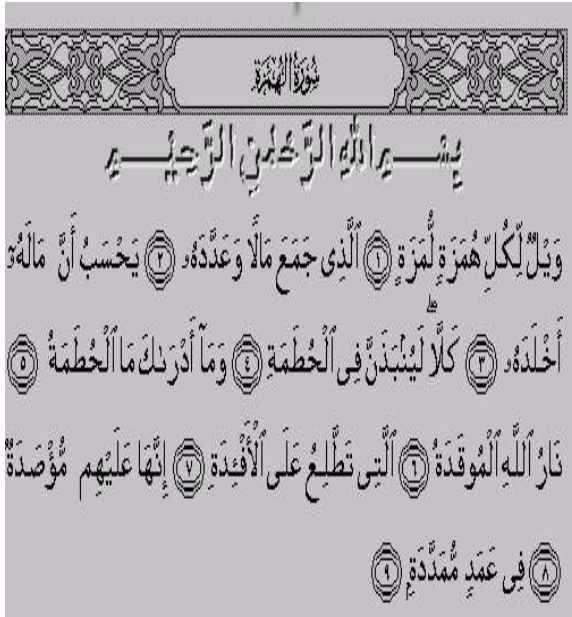 سُورَةُ الهُمَزَةِ
بِسْمِ اللهِ الرَّحْمٰنِ الرَّحِيمِ
وَيْلٌ لِّكُلِّ هُمَزَةٍ لُّمَزَةٍ ١ ٱلَّذِى جَمَعَ مَالًا وَعَدَّدَهُۥ ٢ يَحْسَبُ أَنَّ مَالَهُۥٓ
أَخْلَدَهُۥ ٣ كَلَّا ۖ لَيُنۢبَذَنَّ فِى ٱلْحُطَمَةِ ٤ وَمَآ أَدْرَىٰكَ مَا ٱلْحُطَمَةُ ٥
نَارُ ٱللَّهِ ٱلْمُوقَدَةُ ٦ ٱلَّتِى تَطَّلِعُ عَلَى ٱلْأَفْـِٔدَةِ ٧ إِنَّهَا عَلَيْهِم مُّؤْصَدَةٌ
٨ فِى عَمَدٍ مُّمَدَّدَةٍۭ ٩